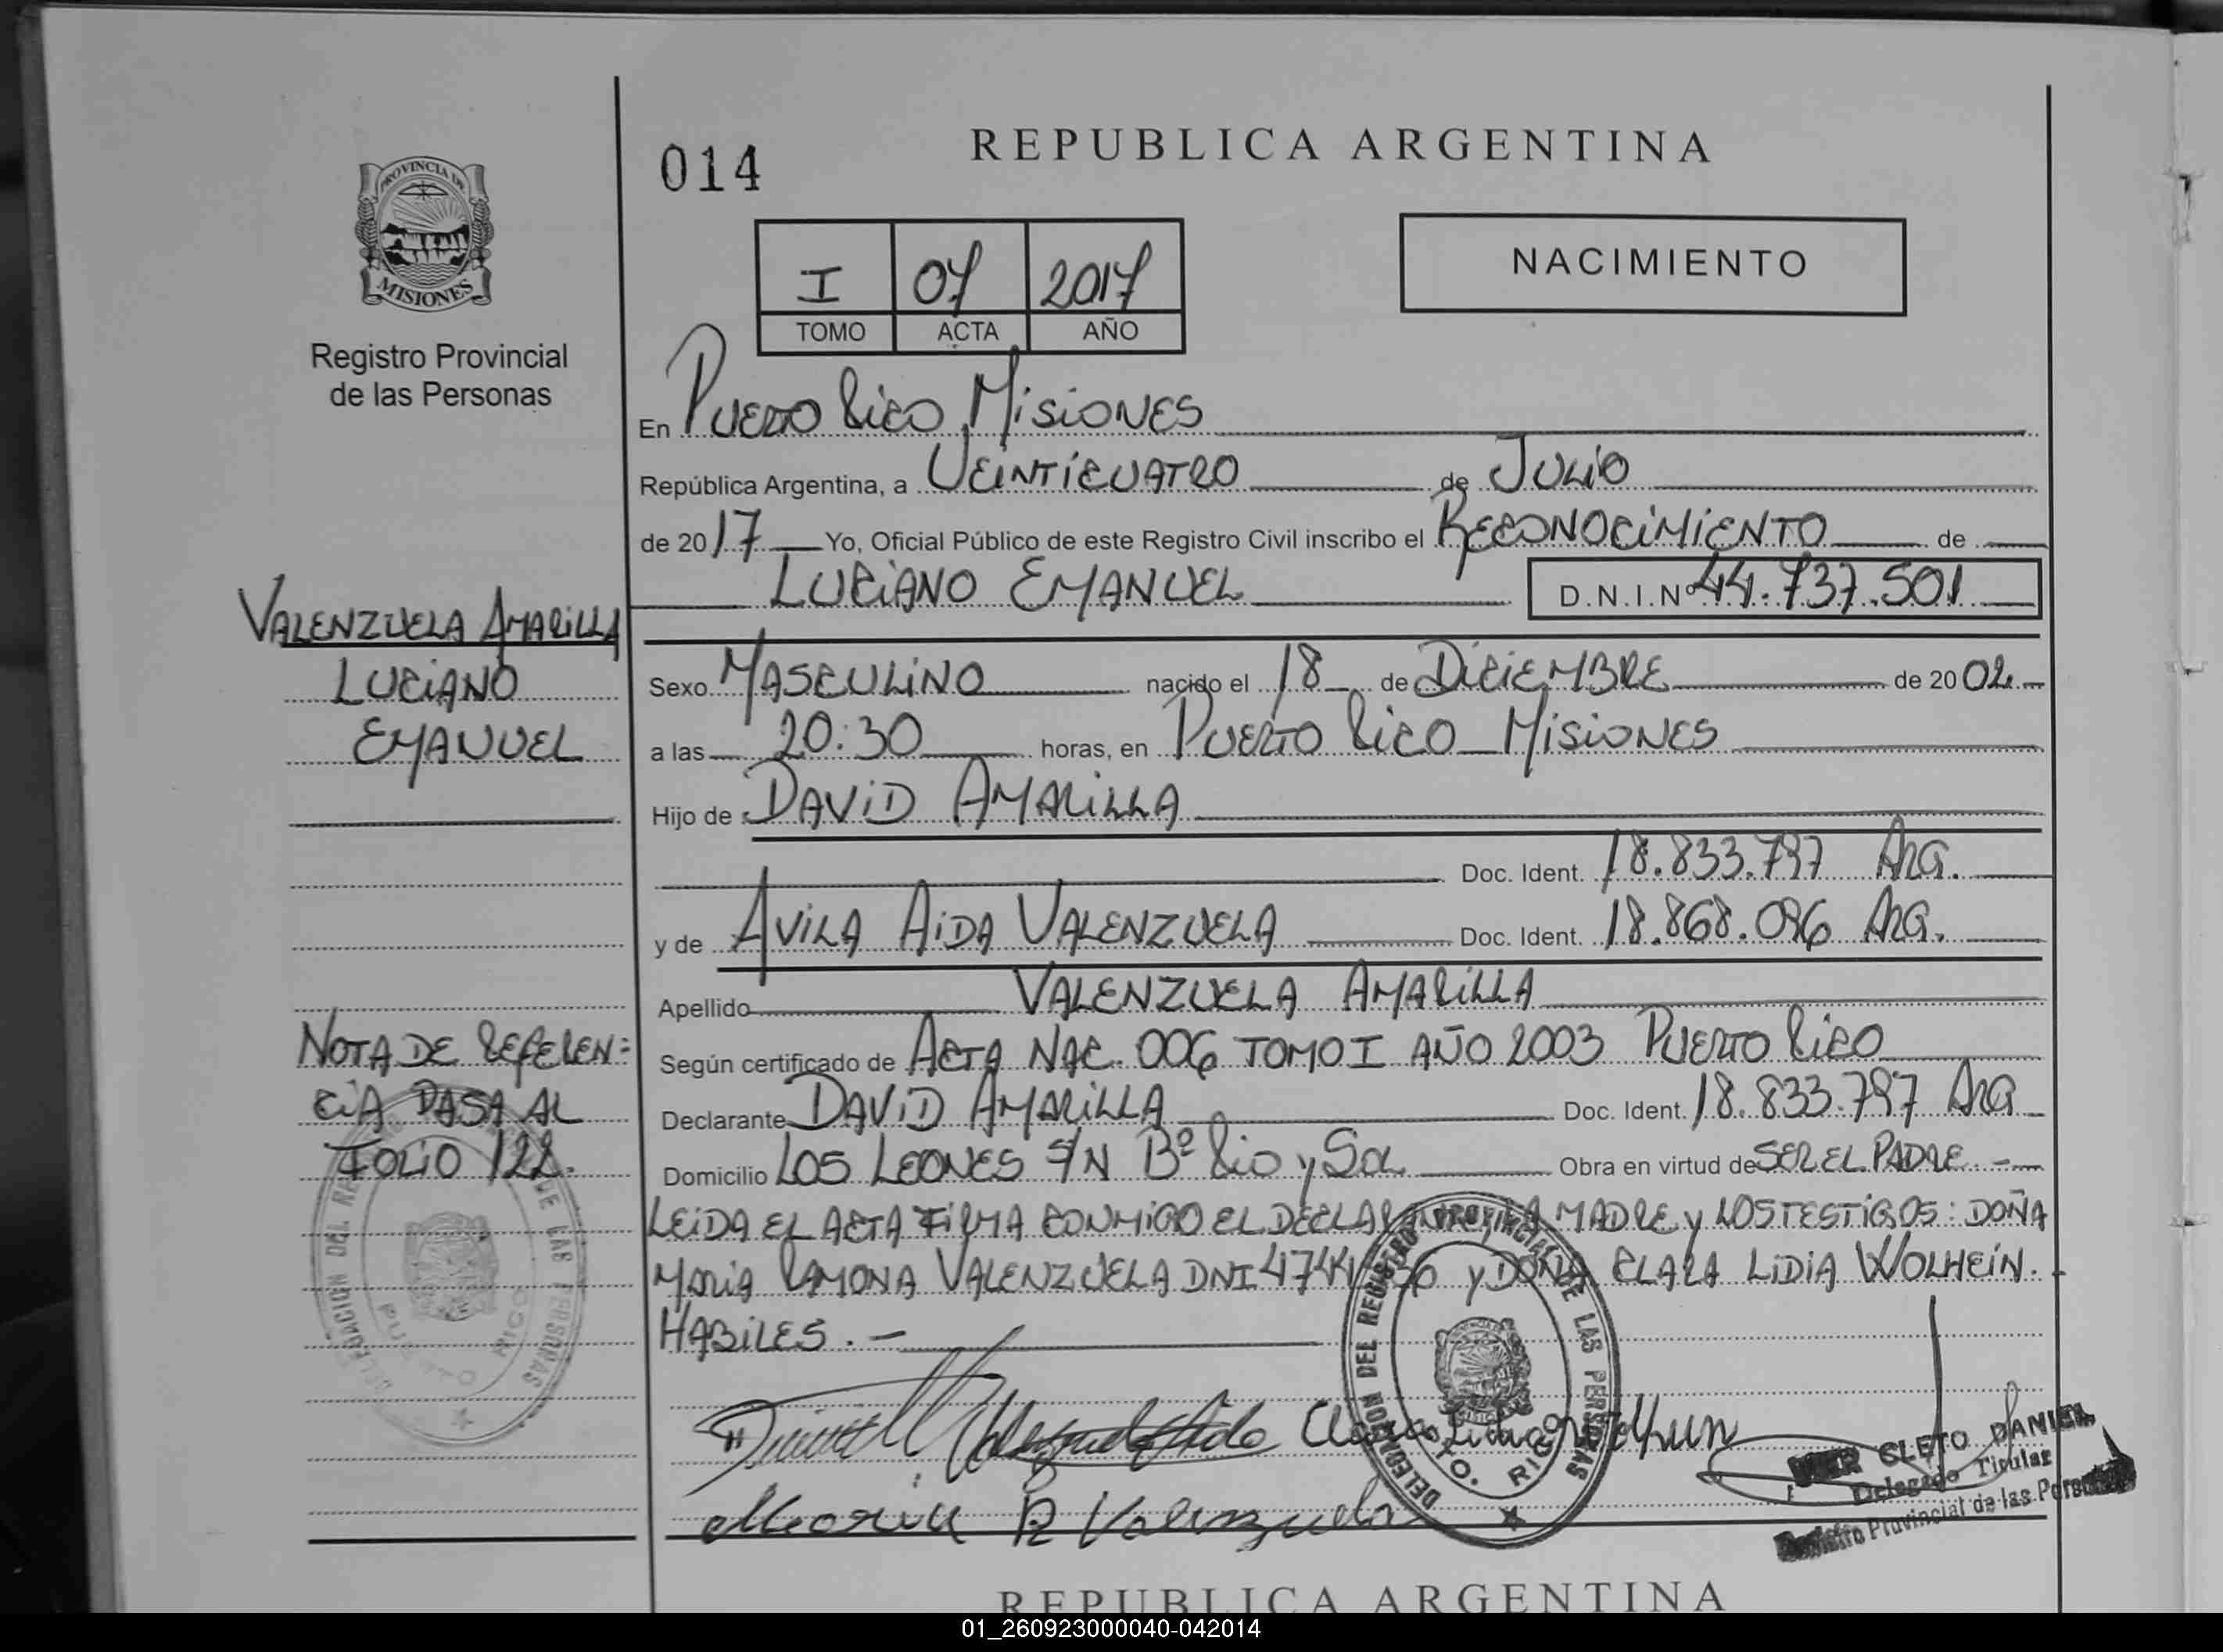 PROVINCIA DE
MISIONES
Registro Provincial
de las Personas
VALENZUELA AMARILLA
LUCIANO
EMANUEL
NOTA DE REFEREN=
CIA PASA AL
FOLIO 122.
014
REPUBLICA ARGENTINA
I 07 2017
TOMO ACTA AÑO
NACIMIENTO
En PUERTO RICO, MISIONES
República Argentina, a VEINTICUATRO de JULIO
de 2017 Yo, Oficial Público de este Registro Civil inscribo el RECONOCIMIENTO de
LUCIANO EMANUEL D.N.I. Nº 44.737.501
Sexo MASCULINO nacido el 18 de DICIEMBRE de 2002
a las 20:30 horas, en PUERTO RICO MISIONES
Hijo de : DAVID AMARILLA
Doc. Ident. 18.833.797 ARG.
y de AVILA AIDA VALENZUELA Doc. Ident. 18.868.096 ARG.
Apellido VALENZUELA AMARILLA
Según certificado de ACTA NAC. 006 TOMO I AÑO 2003 PUERTO RICO
Declarante DAVID AMARILLA Doc. Ident. 18.833.797 ARG
Domicilio LOS LEONES S/N Bº RIO y SOL Obra en virtud de SER EL PADRE.-
LEIDA EL ACTA FIRMA CONMIGO EL DECLARANTE, LA MADRE y LOS TESTIGOS: DOÑA
MARIA RAMONA VALENZUELA DNI y DOÑA CLARA LIDIA WOLHEIN.
HABILES.-
DELEGACION DEL REGISTRO PROVINCIAL DE LAS PERSONAS
PTO. RICO
DELEGACION DEL DE LAS PERSONAS
PUERTO RICO
Maria R Valenzuela
CLETO DANIEL
Delegado Titular
Registro Provincial de las Personas
REPUBLICA ARGENTINA
01_260923000040-042014